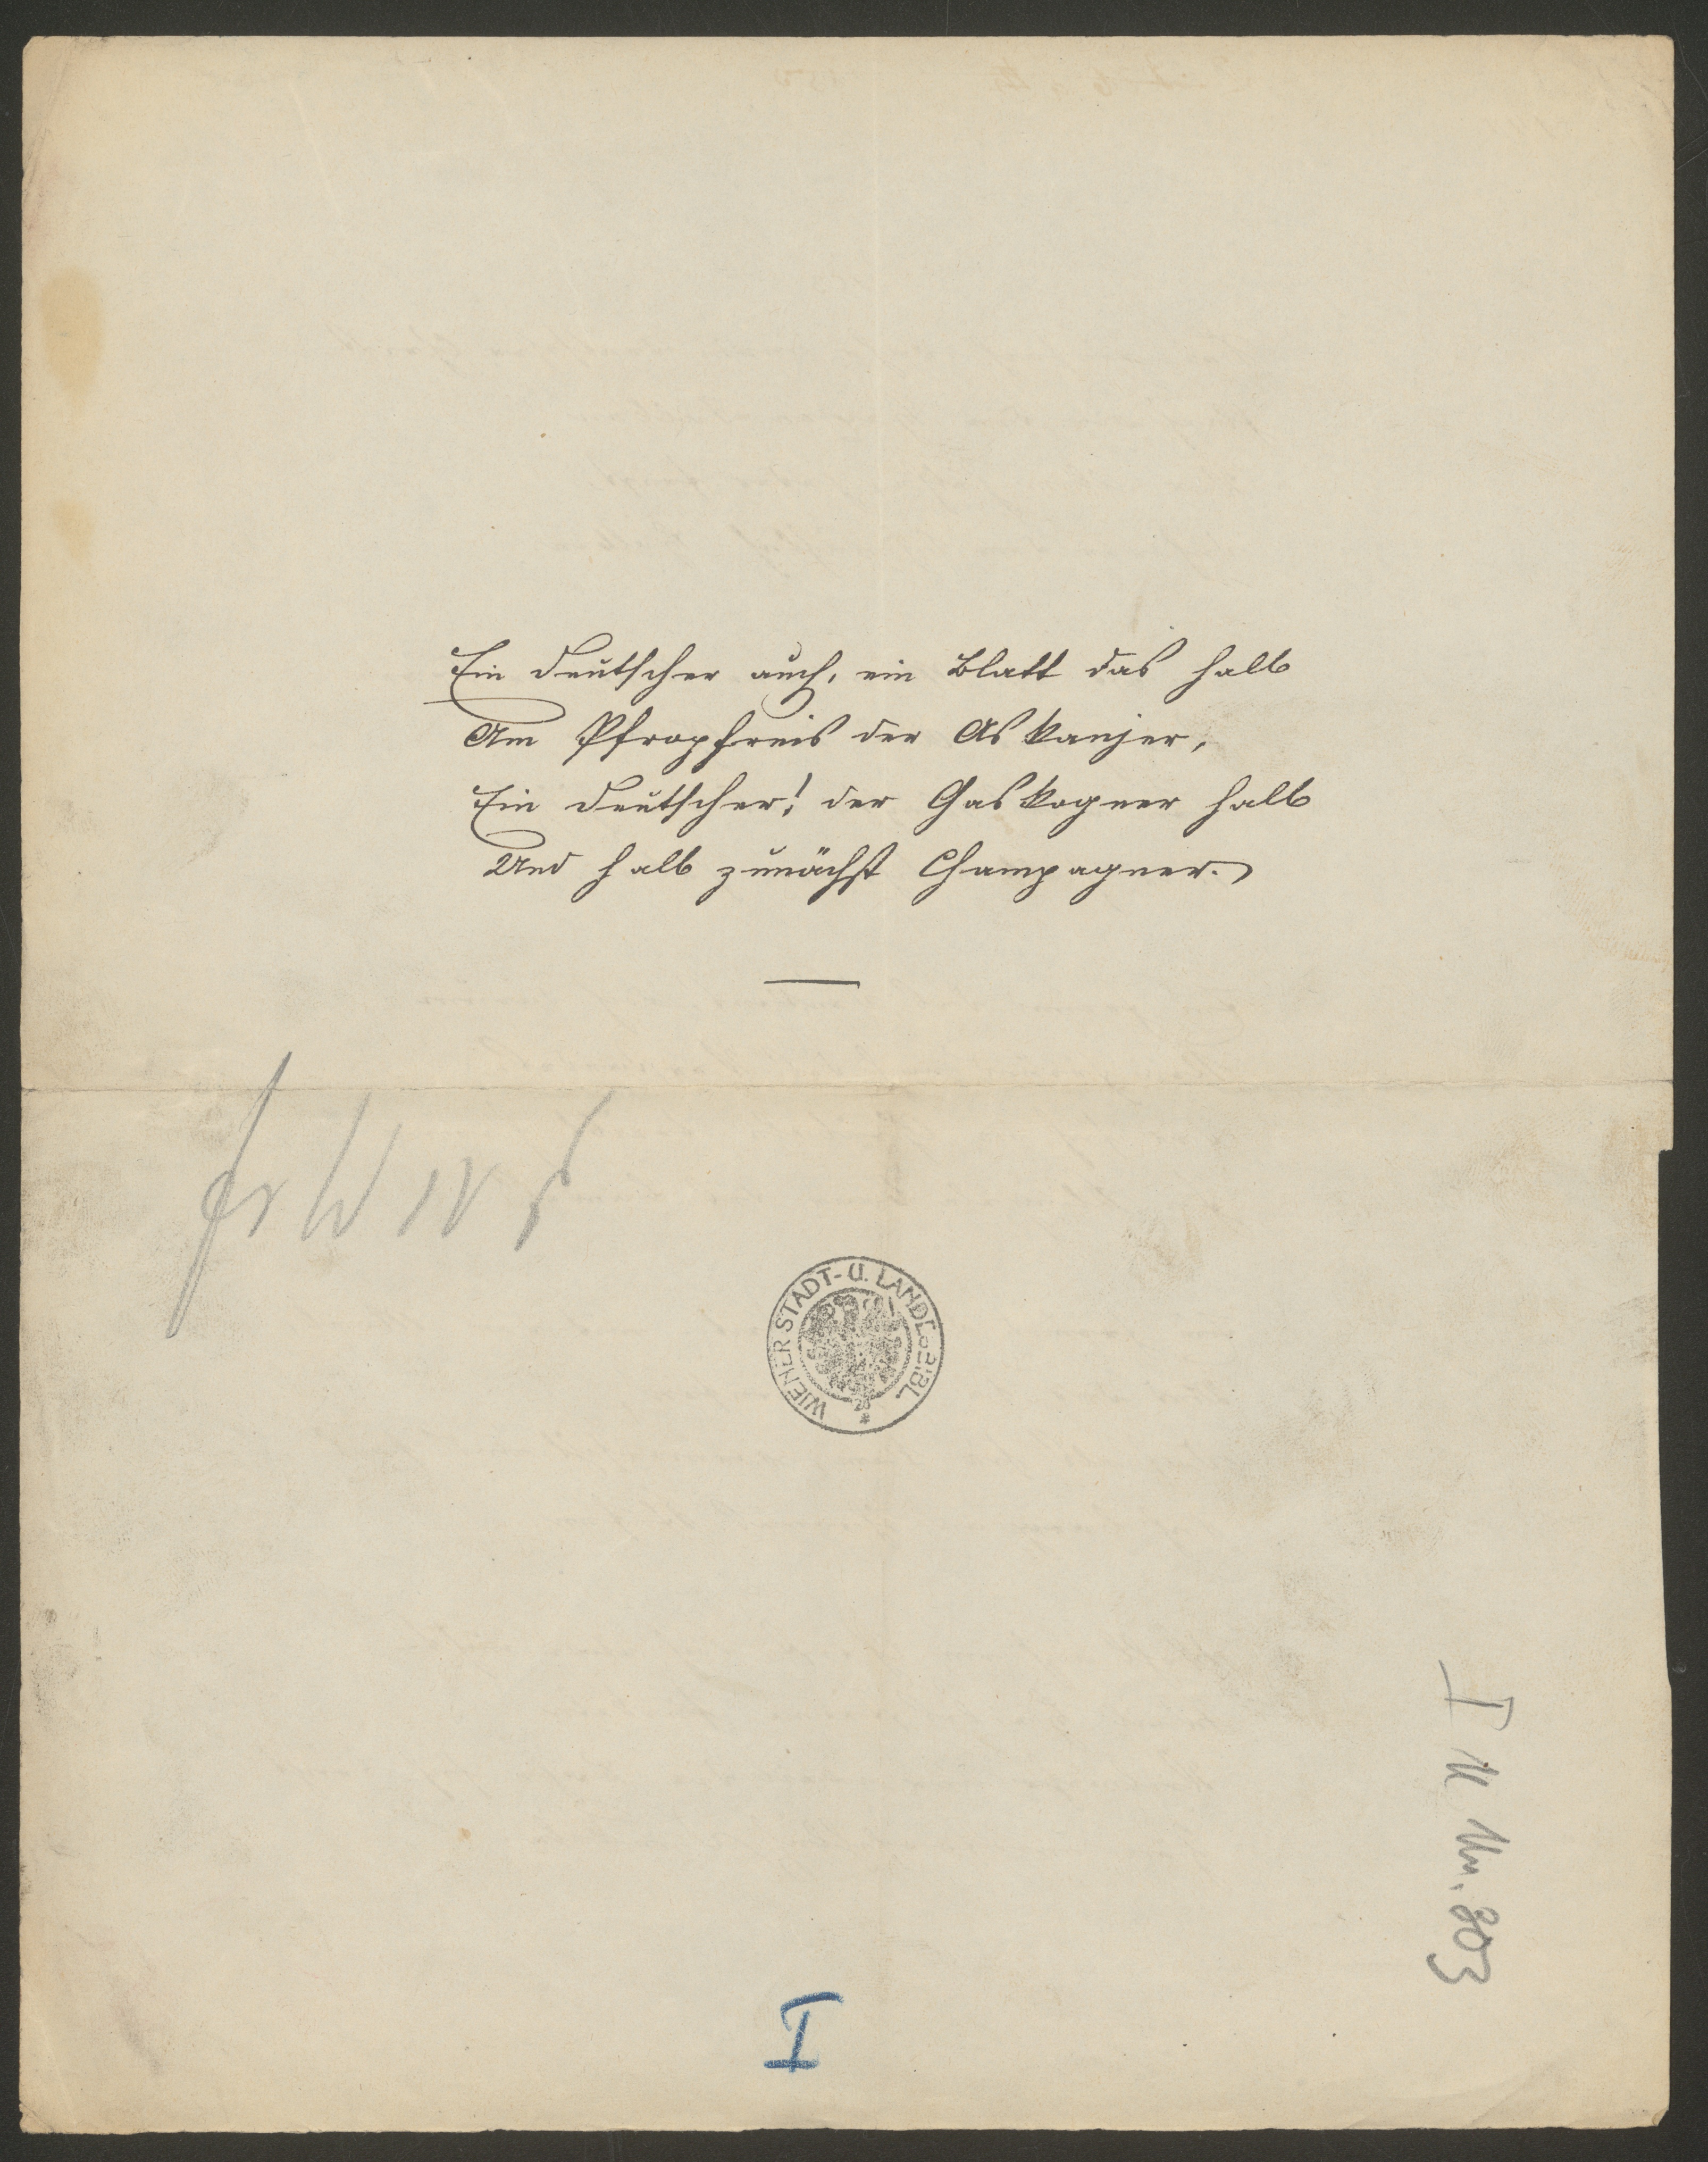 Ein Deutscher auch, ein Blatt das halb
Am Pfropfreis der Askanjer,
Ein Deutscher! der Gaskogner halb
Und halb zunächst Champagner.
Fr W IV
WIENER STADT- U. LANDES-BIBL.
I N Un. 803
I